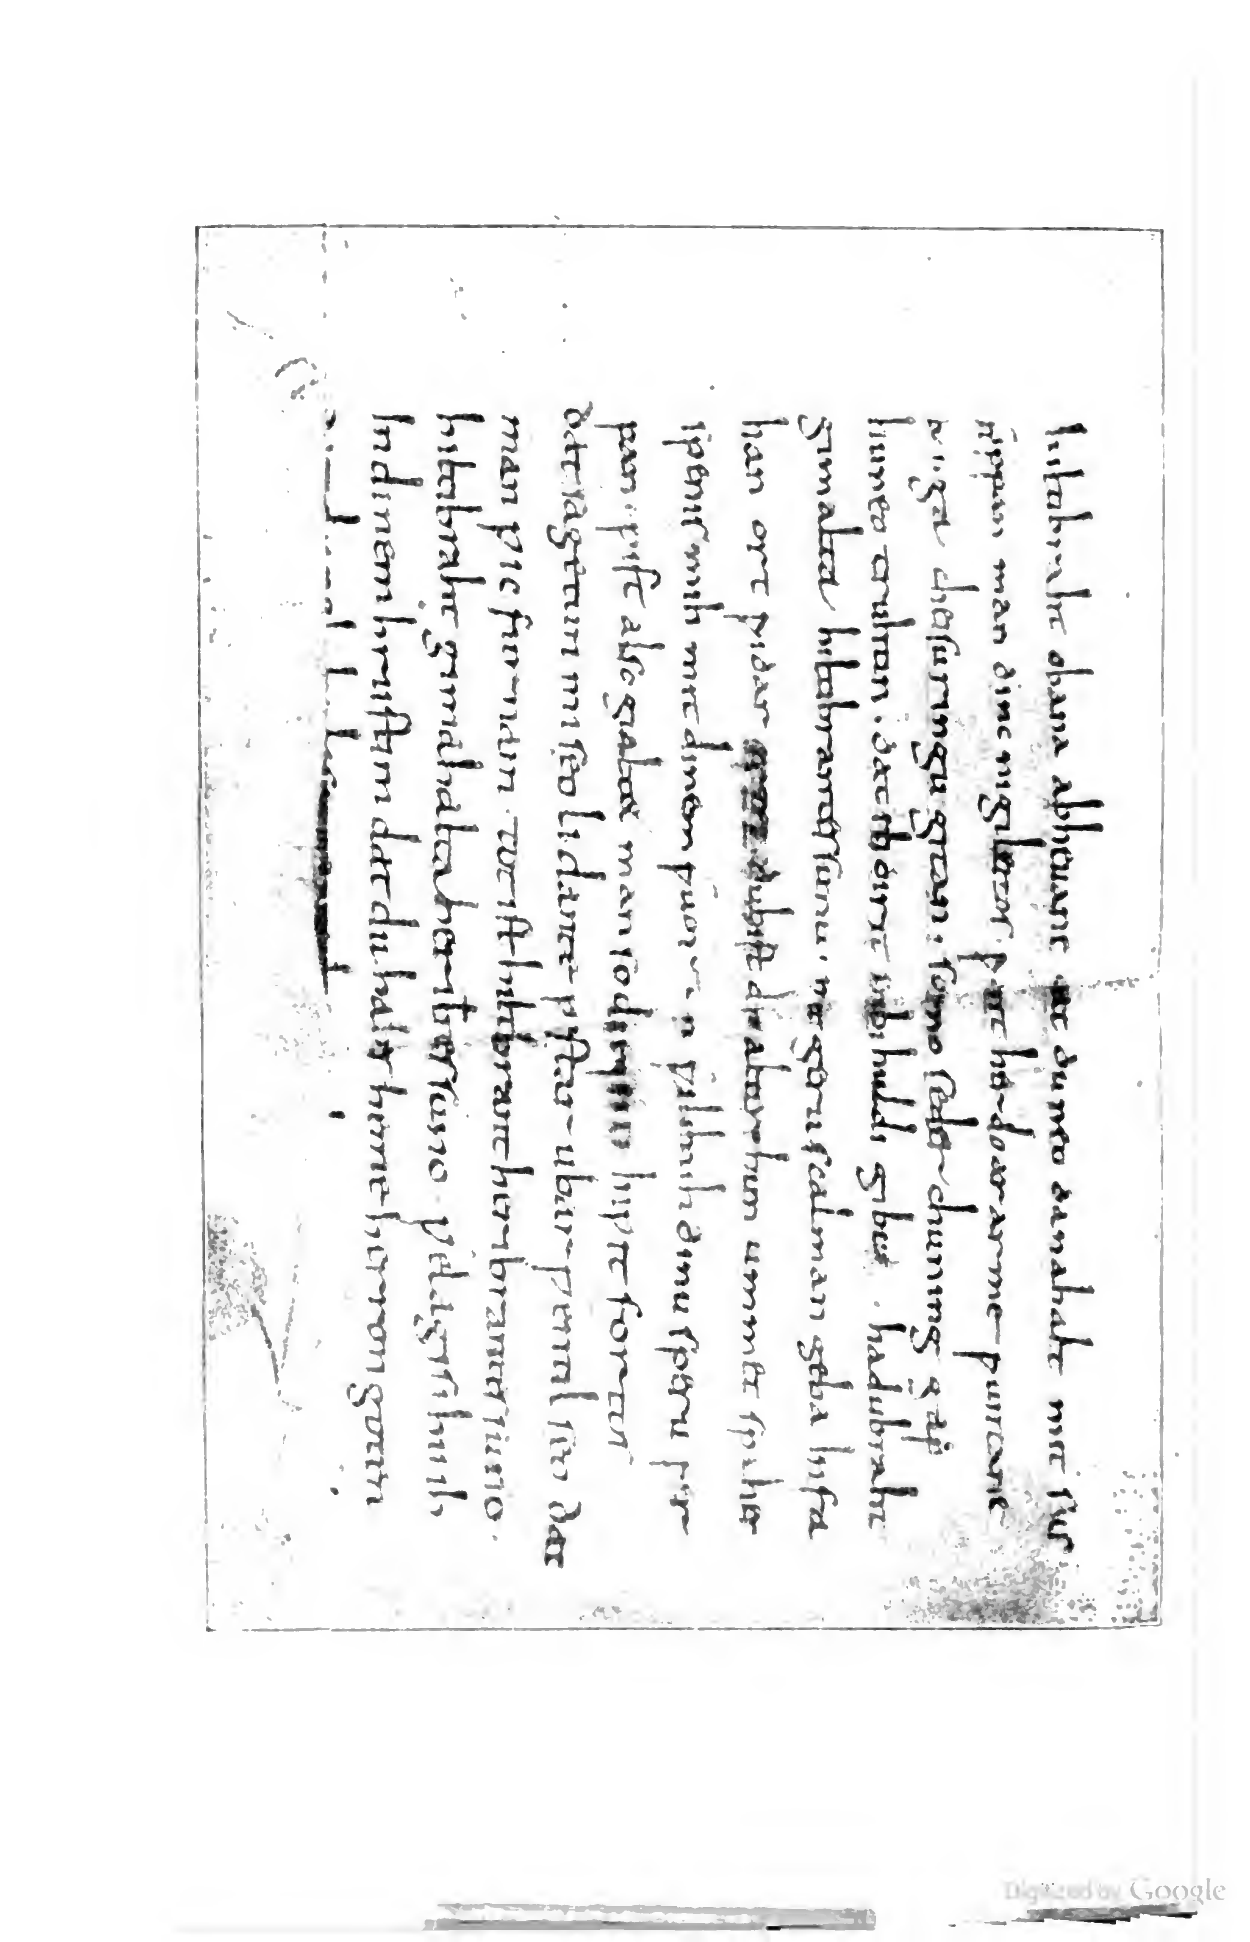 hiltibraht obana abheuane dat du neo danahalt mit sus
sippan man dinc nigileitos. ƿant her do ar arme ƿuntane
cheisuringu gitan. so imo seder chuning gap
huneo truhtin. dat ih dir it nu bi huldi gibu. hadubraht
gimalta hiltibrantes sunu. mit geru scal man geba infa
han ort ƿidar orte. du bist dir alter hun ummet spaher
spenis mih mit dinem ƿuortun ƿili mih dinu speru ƿer
pan. pist also gialtet man so du eƿin inƿit fortos
dat sagetun mi seo lidante ƿestar ubar ƿentilseo dat
man ƿic furnam. tot ist hiltibrant heribrantes suno.
hiltibraht gimahalta heribtes suno. ƿelaga sihu ih
In dinem hrustim dat du habes heme herron goten